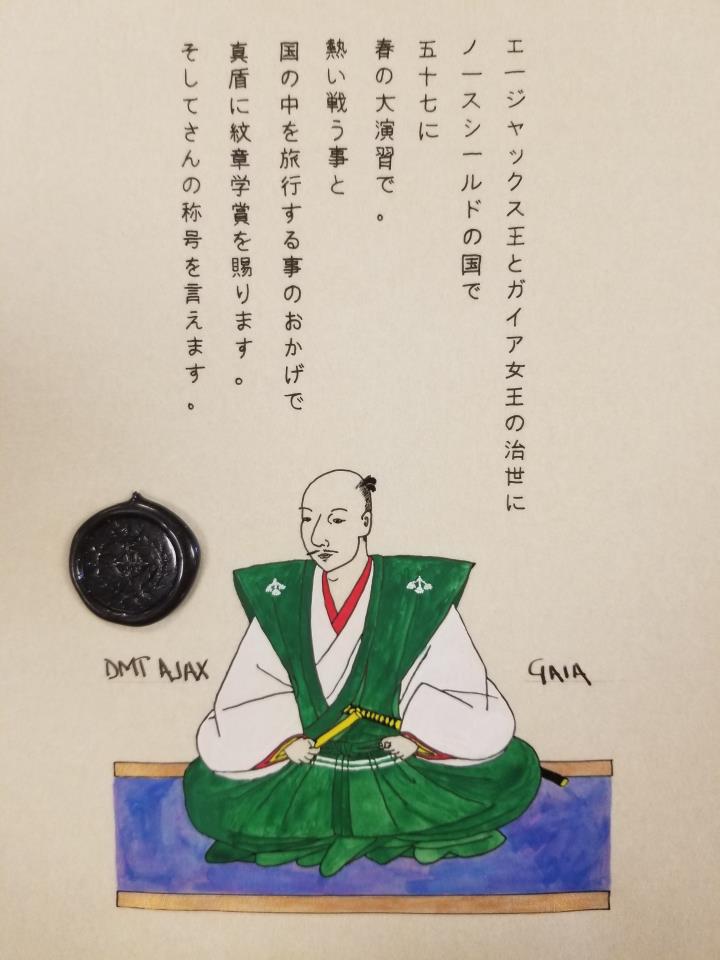 エージャックス王とガイア女王の治世に
ノースシールドの国で
五十七に
春の大演習で。
熱い戦う事と
国の中を旅行する事のおかげで
真盾に紋章学賞を賜ります。
そしてさんの称号を言えます。
DMT AJAX
GAIA